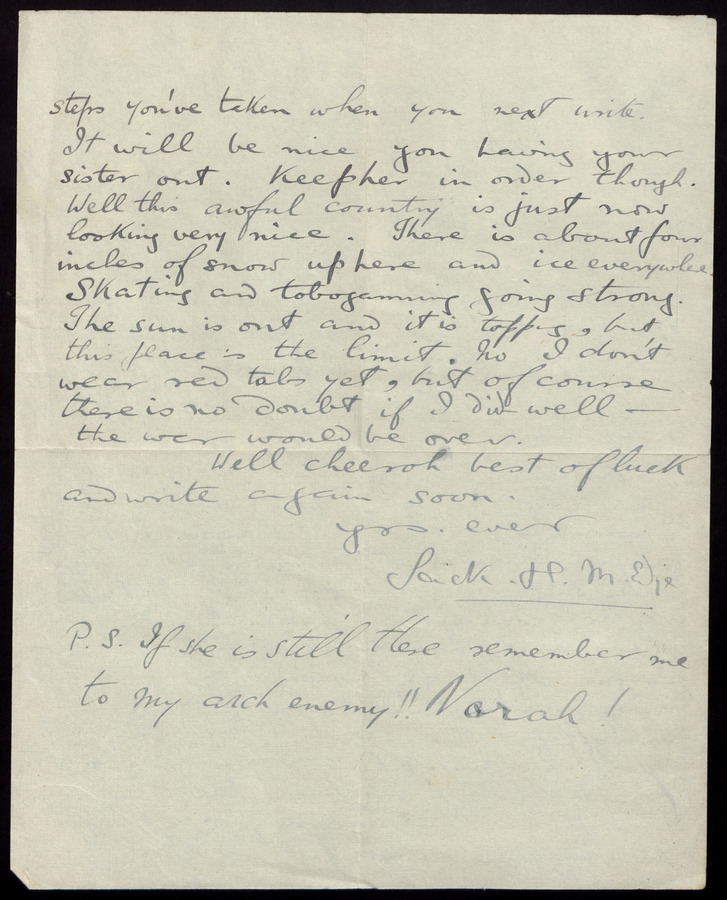 steps you've taken when you next write.
It will be nice you having your
sister out. Keep her in order though.
Well this awful country is just now
looking very nice. There is about four
inches of snow up here and ice everywhere.
Skating and toboganning going strong.
The sun is out and it is topping, but
this place is the limit. No I don't
wear red tabs yet, but of course
there is no doubt if I did well —
the war would be over.
Well cheeroh best of luck
and write again soon.
yrs. ever
H. M.
P.S. If she is still there remember me
to my arch enemy!! Norah!